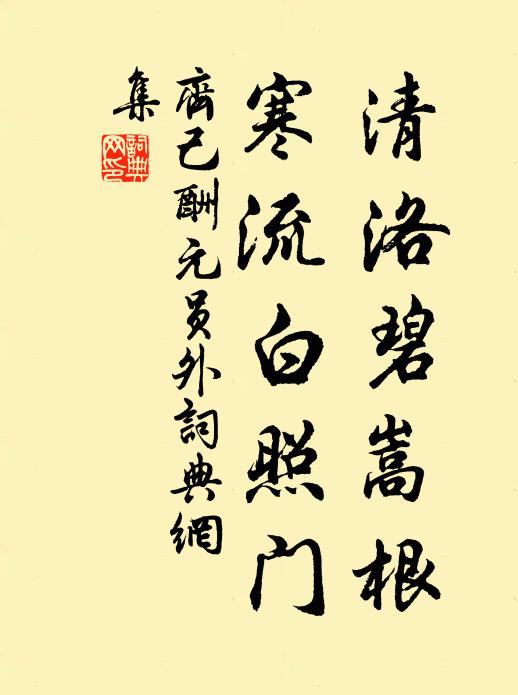 清洛碧嵩根
寒流白照门
齊己酬元员外詞典網
集
詞典
网印